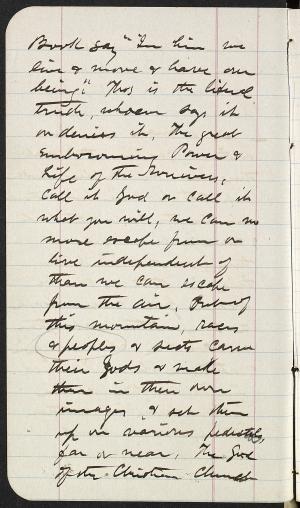 Book say "In him we
live & move & have our
being". This is the literal
truth, whoever says it
or denies it, The great
Embosoming Power &
Life of the Universe,
Call it God or call it
what you will, we can no
more escape from or
live independent of
than we can escape
from the air. Out of
this mountain, races
& peoples & sects carve
their Gods & make
them in their own
images, & set them
up on various pedestals,
far or near, The God
of the Christian Church